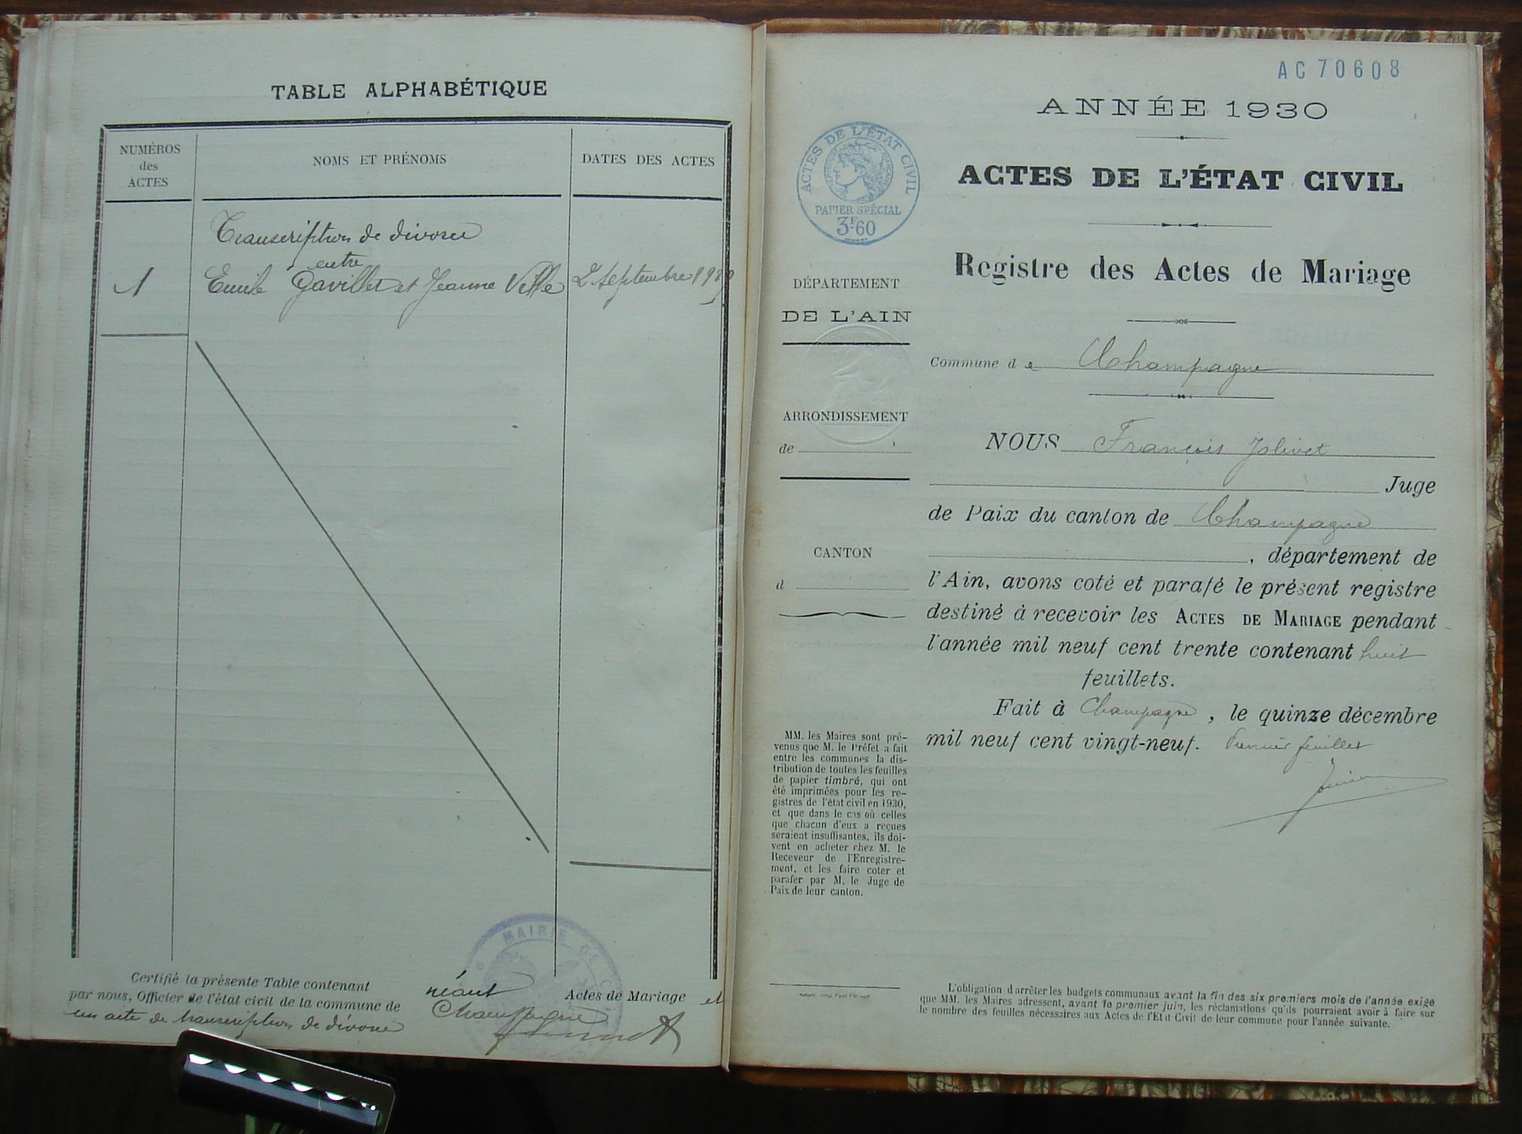 TABLE ALPHABÉTIQUE
NUMÉROS
des
ACTES
NOMS ET PRÉNOMS
DATES DES ACTES
Transcription de divorce
entre
1
Emile et Jeanne
2 Septembre
Certifié la présente Table contenant néant Actes de Mariage et
par nous, Officier de l'état civil de la commune de Champagne
un acte de transcription de divorce
MAIRIE DE
AC 70608
ANNÉE 1930
ACTES DE L'ÉTAT CIVIL
PAPIER SPÉCIAL
3F60
ACTES DE L'ÉTAT CIVIL
Registre des Actes de Mariage
DÉPARTEMENT
DE L'AIN
Commune de Champagne
ARRONDISSEMENT
de
CANTON
d
NOUS François Jolivet
Juge
de Paix du canton de Champagne
, département de
l'Ain, avons coté et parafé le présent registre
destiné à recevoir les ACTES DE MARIAGE pendant
l'année mil neuf cent trente contenant huit
feuillets.
Fait à Champagne, le quinze décembre
mil neuf cent vingt-neuf. Premier feuillet
MM. les Maires sont pré-
venus que M. le Préfet a fait
entre les communes la dis-
tribution de toutes les feuilles
de papier timbré, qui ont
été imprimées pour les re-
gistres de l'état civil en 1930,
et que dans le cas où celles
que chacun d'eux a reçues
seraient insuffisantes, ils doi-
vent en acheter chez M. le
Receveur de l'Enregistre-
ment, et les faire coter et
parafer par M. le Juge de
Paix de leur canton.
L'obligation d'arrêter les budgets communaux avant la fin des six premiers mois de l'année exige
que MM. les Maires adressent, avant le premier juin, les réclamations qu'ils pourraient avoir à faire sur
le nombre des feuilles nécessaires aux Actes de l'Etat Civil de leur commune pour l'année suivante.